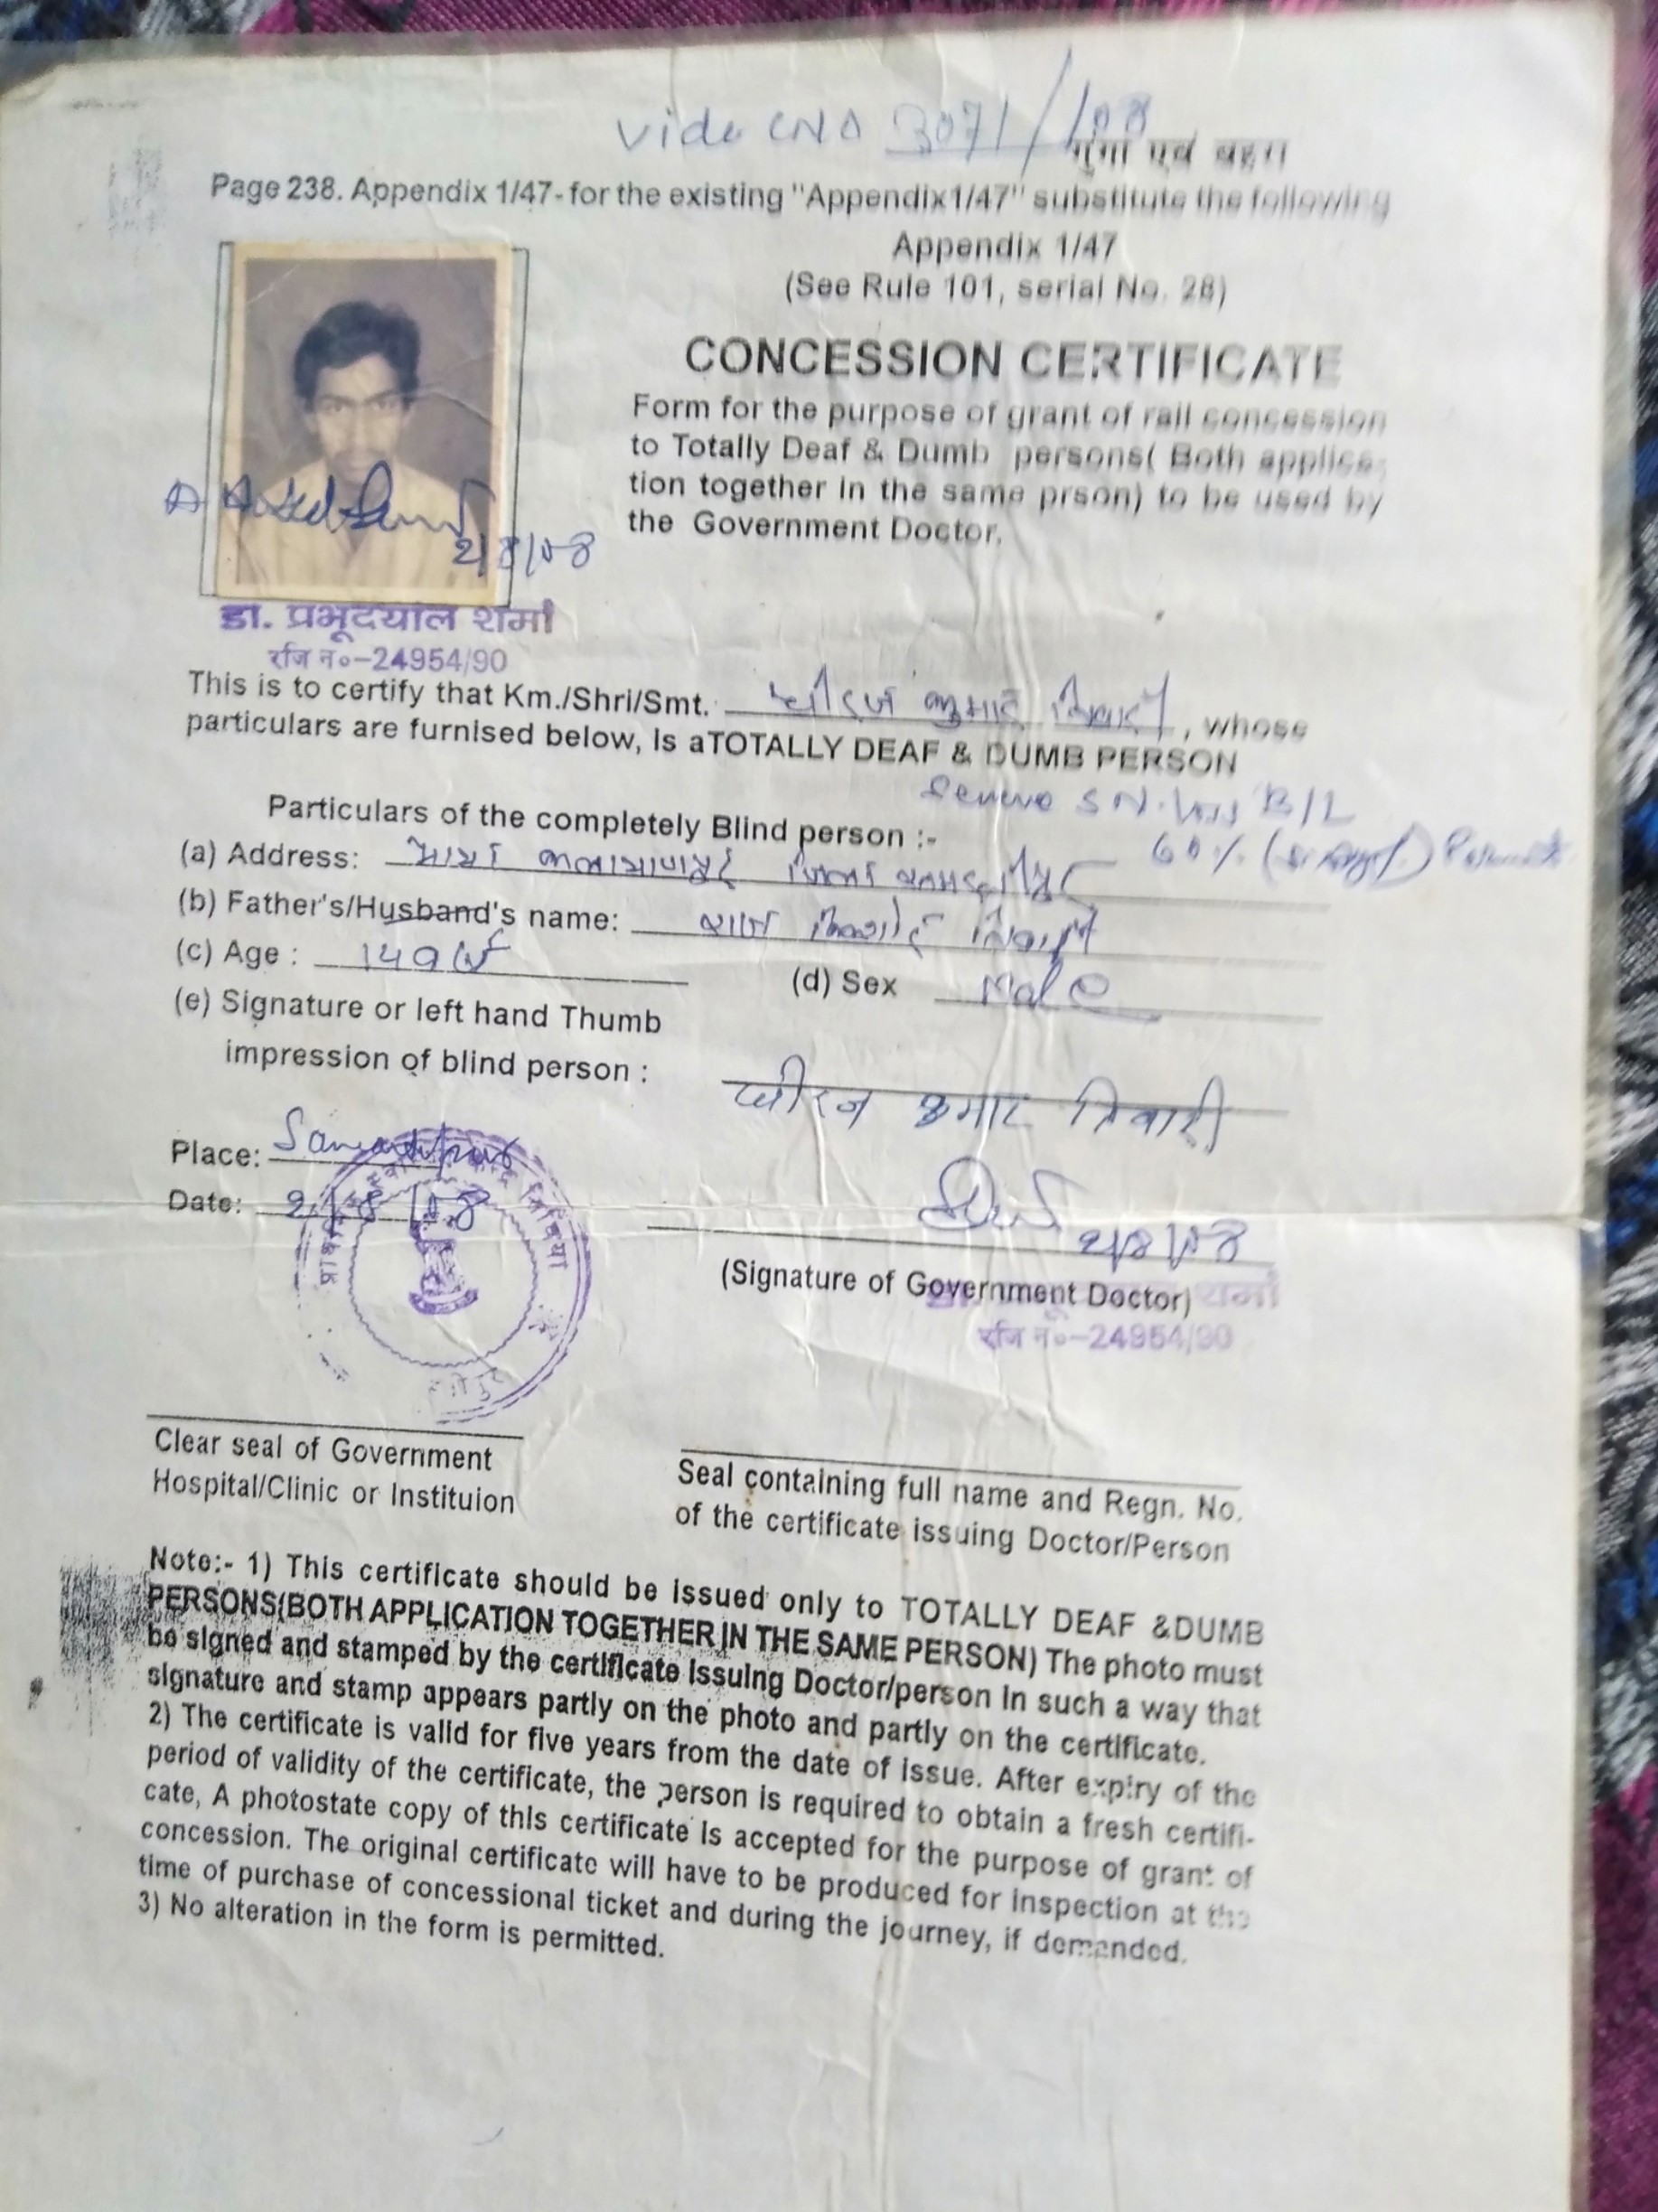 Vide CNO 3071/08
गूंगा एवं बहरा
Page 238. Appendix 1/47- for the existing "Appendix1/47" substitute the following
Appendix 1/47
(See Rule 101, serial No. 28)
CONCESSION CERTIFICATE
Form for the purpose of grant of rail concession
to Totally Deaf & Dumb persons( Both applica-
tion together in the same prson) to be used by
the Government Doctor.
2/8/08
डा. प्रभूदयाल शर्मा
रजि न०-24954/90
This is to certify that Km./Shri/Smt. धीरज कुमार तिवारी, whose
particulars are furnised below, Is aTOTALLY DEAF & DUMB PERSON
S N. Loss B/L
Particulars of the completely Blind person :-
60%
(a) Address: जिला समस्तीपुर
(b) Father's/Husband's name: किशोर तिवारी
(c) Age :
(d) Sex Male
(e) Signature or left hand Thumb
impression of blind person :
धीरज कुमार तिवारी
Place: Samastipur
Date: 2/8/08
2/8/08
(Signature of Government Doctor)
शर्मा
रजि न०-24954/90
Clear seal of Government
Hospital/Clinic or Instituion
Seal containing full name and Regn. No.
of the certificate issuing Doctor/Person
Note:- 1) This certificate should be issued only to TOTALLY DEAF &DUMB
PERSONS(BOTH APPLICATION TOGETHER IN THE SAME PERSON) The photo must
be signed and stamped by the certificate issuing Doctor/person in such a way that
signature and stamp appears partly on the photo and partly on the certificate.
2) The certificate is valid for five years from the date of issue. After expiry of the
period of validity of the certificate, the person is required to obtain a fresh certifi-
cate, A photostate copy of this certificate is accepted for the purpose of grant of
concession. The original certificate will have to be produced for inspection at the
time of purchase of concessional ticket and during the journey, if demanded.
3) No alteration in the form is permitted.